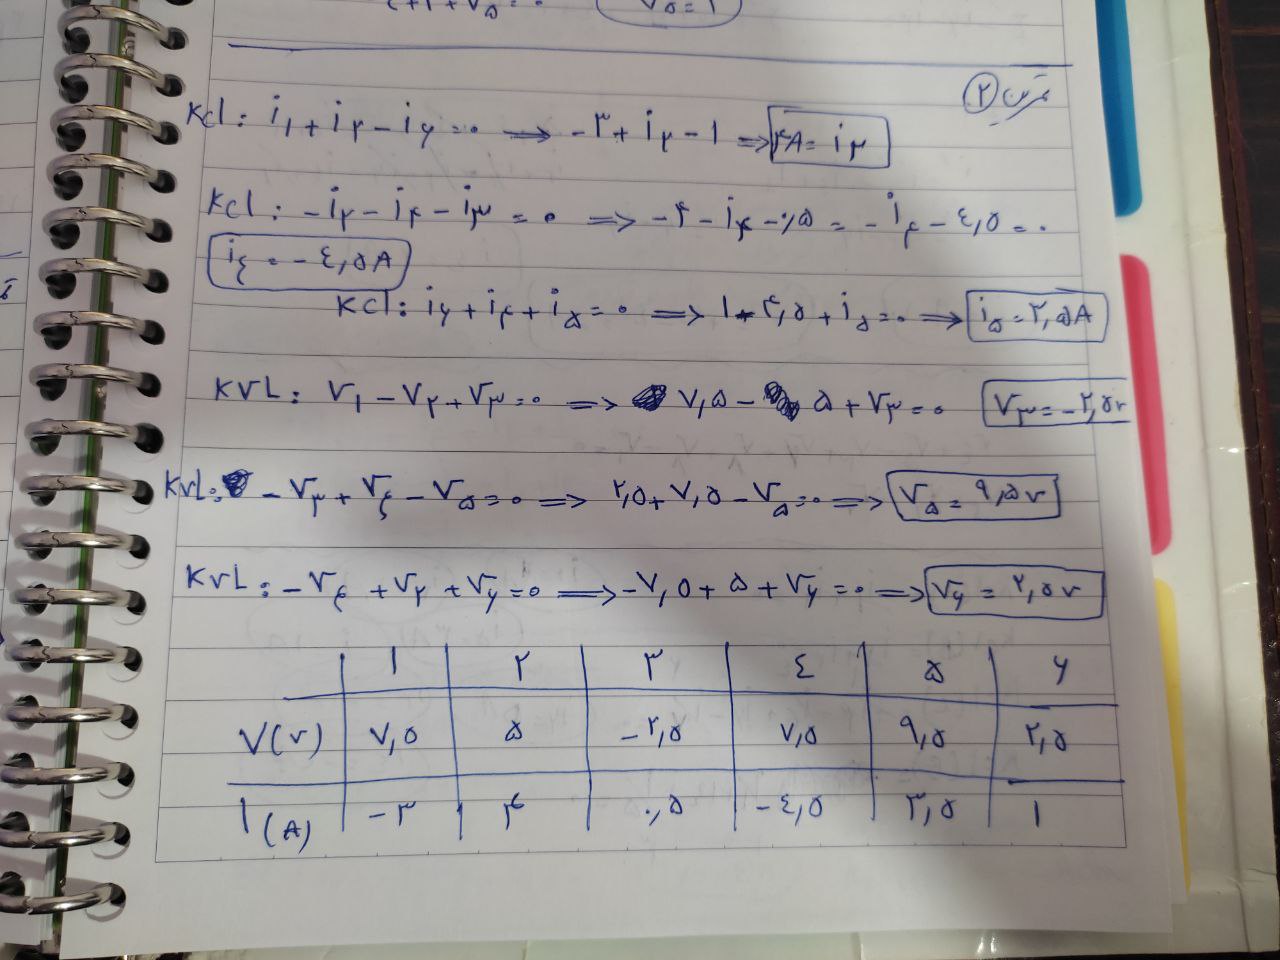 V۵ = ۱
تمرین ۲
KCL: i۱ + i۲ - i۶ = ۰ ⟹ -۳ + i۲ - ۱ ⟹ ۴A = i۲
KCL: -i۲ - i۴ - i۳ = ۰ ⟹ -۴ - i۴ - ۰,۵ = -i۴ - ٤,۵ = ۰
i٤ = -٤,۵A
KCL: i۶ + i۴ + i۵ = ۰ ⟹ ۱ - ۴,۵ + i۵ = ۰ ⟹ i۵ = ۳,۵A
KVL: V۱ - V۲ + V۳ = ۰ ⟹ ۷,۵ - ۵ + V۳ = ۰ V۳ = -۲,۵v
KVL: - V۳ + V٤ - V۵ = ۰ ⟹ ۲,۵ + ۷,۵ - V۵ = ۰ ⟹ V۵ = ۹,۵v
KVL: -V٤ + V۲ + V۶ = ۰ ⟹ -۷,۵ + ۵ + V۶ = ۰ ⟹ V۶ = ۲,۵v
۱ ۲ ۳ ٤ ۵ ۶
V(v) ۷,۵ ۵ -۲,۵ ۷,۵ ۹,۵ ۲,۵
I(A) -۳ ۴ ۰,۵ -٤,۵ ۳,۵ ۱